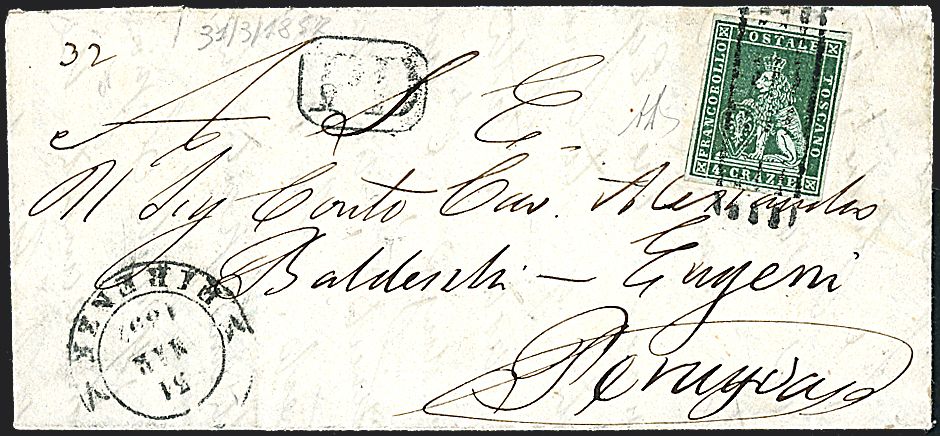 31/3/1857
32
PD
FRANCOBOLLO
POSTALE
TOSCANO
4 CRAZIE
A S E
Al Sig Conte Cav. Alessandro
Baldeschi - Eugeni
Perugia
FIRENZE
1857
MAR
31